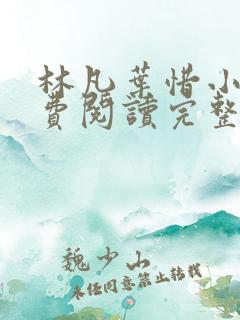 林凡葉惜小
費閱讀完整
魏少山
未经同意禁止转载